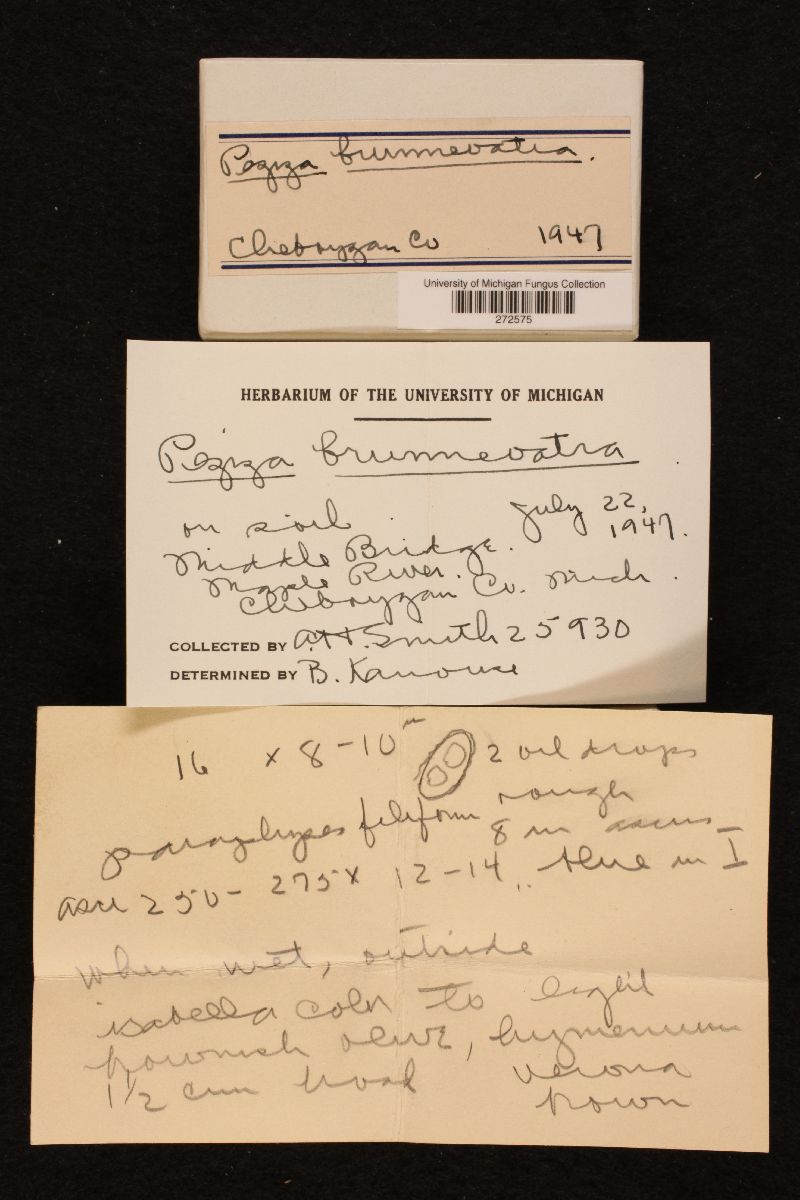 Peziza brunneoatra.
Cheboygan Co 1947
University of Michigan Fungus Collection
272575
HERBARIUM OF THE UNIVERSITY OF MICHIGAN
Peziza brunneoatra
on soil July 22,
1947.
Middle Bridge.
Maple River.
Cheboygan Co. Mich.
COLLECTED BY A.H. Smith 25930
DETERMINED BY B. Kanouse
16 x 8-10 μ 2 oil drops
rough
paraphyses filiform 8 in ascus
asci 250-275 x 12-14 blue in I
when wet, outside
isabella color to light
brownish olive, hymenium
1 1/2 cm broad verona
brown